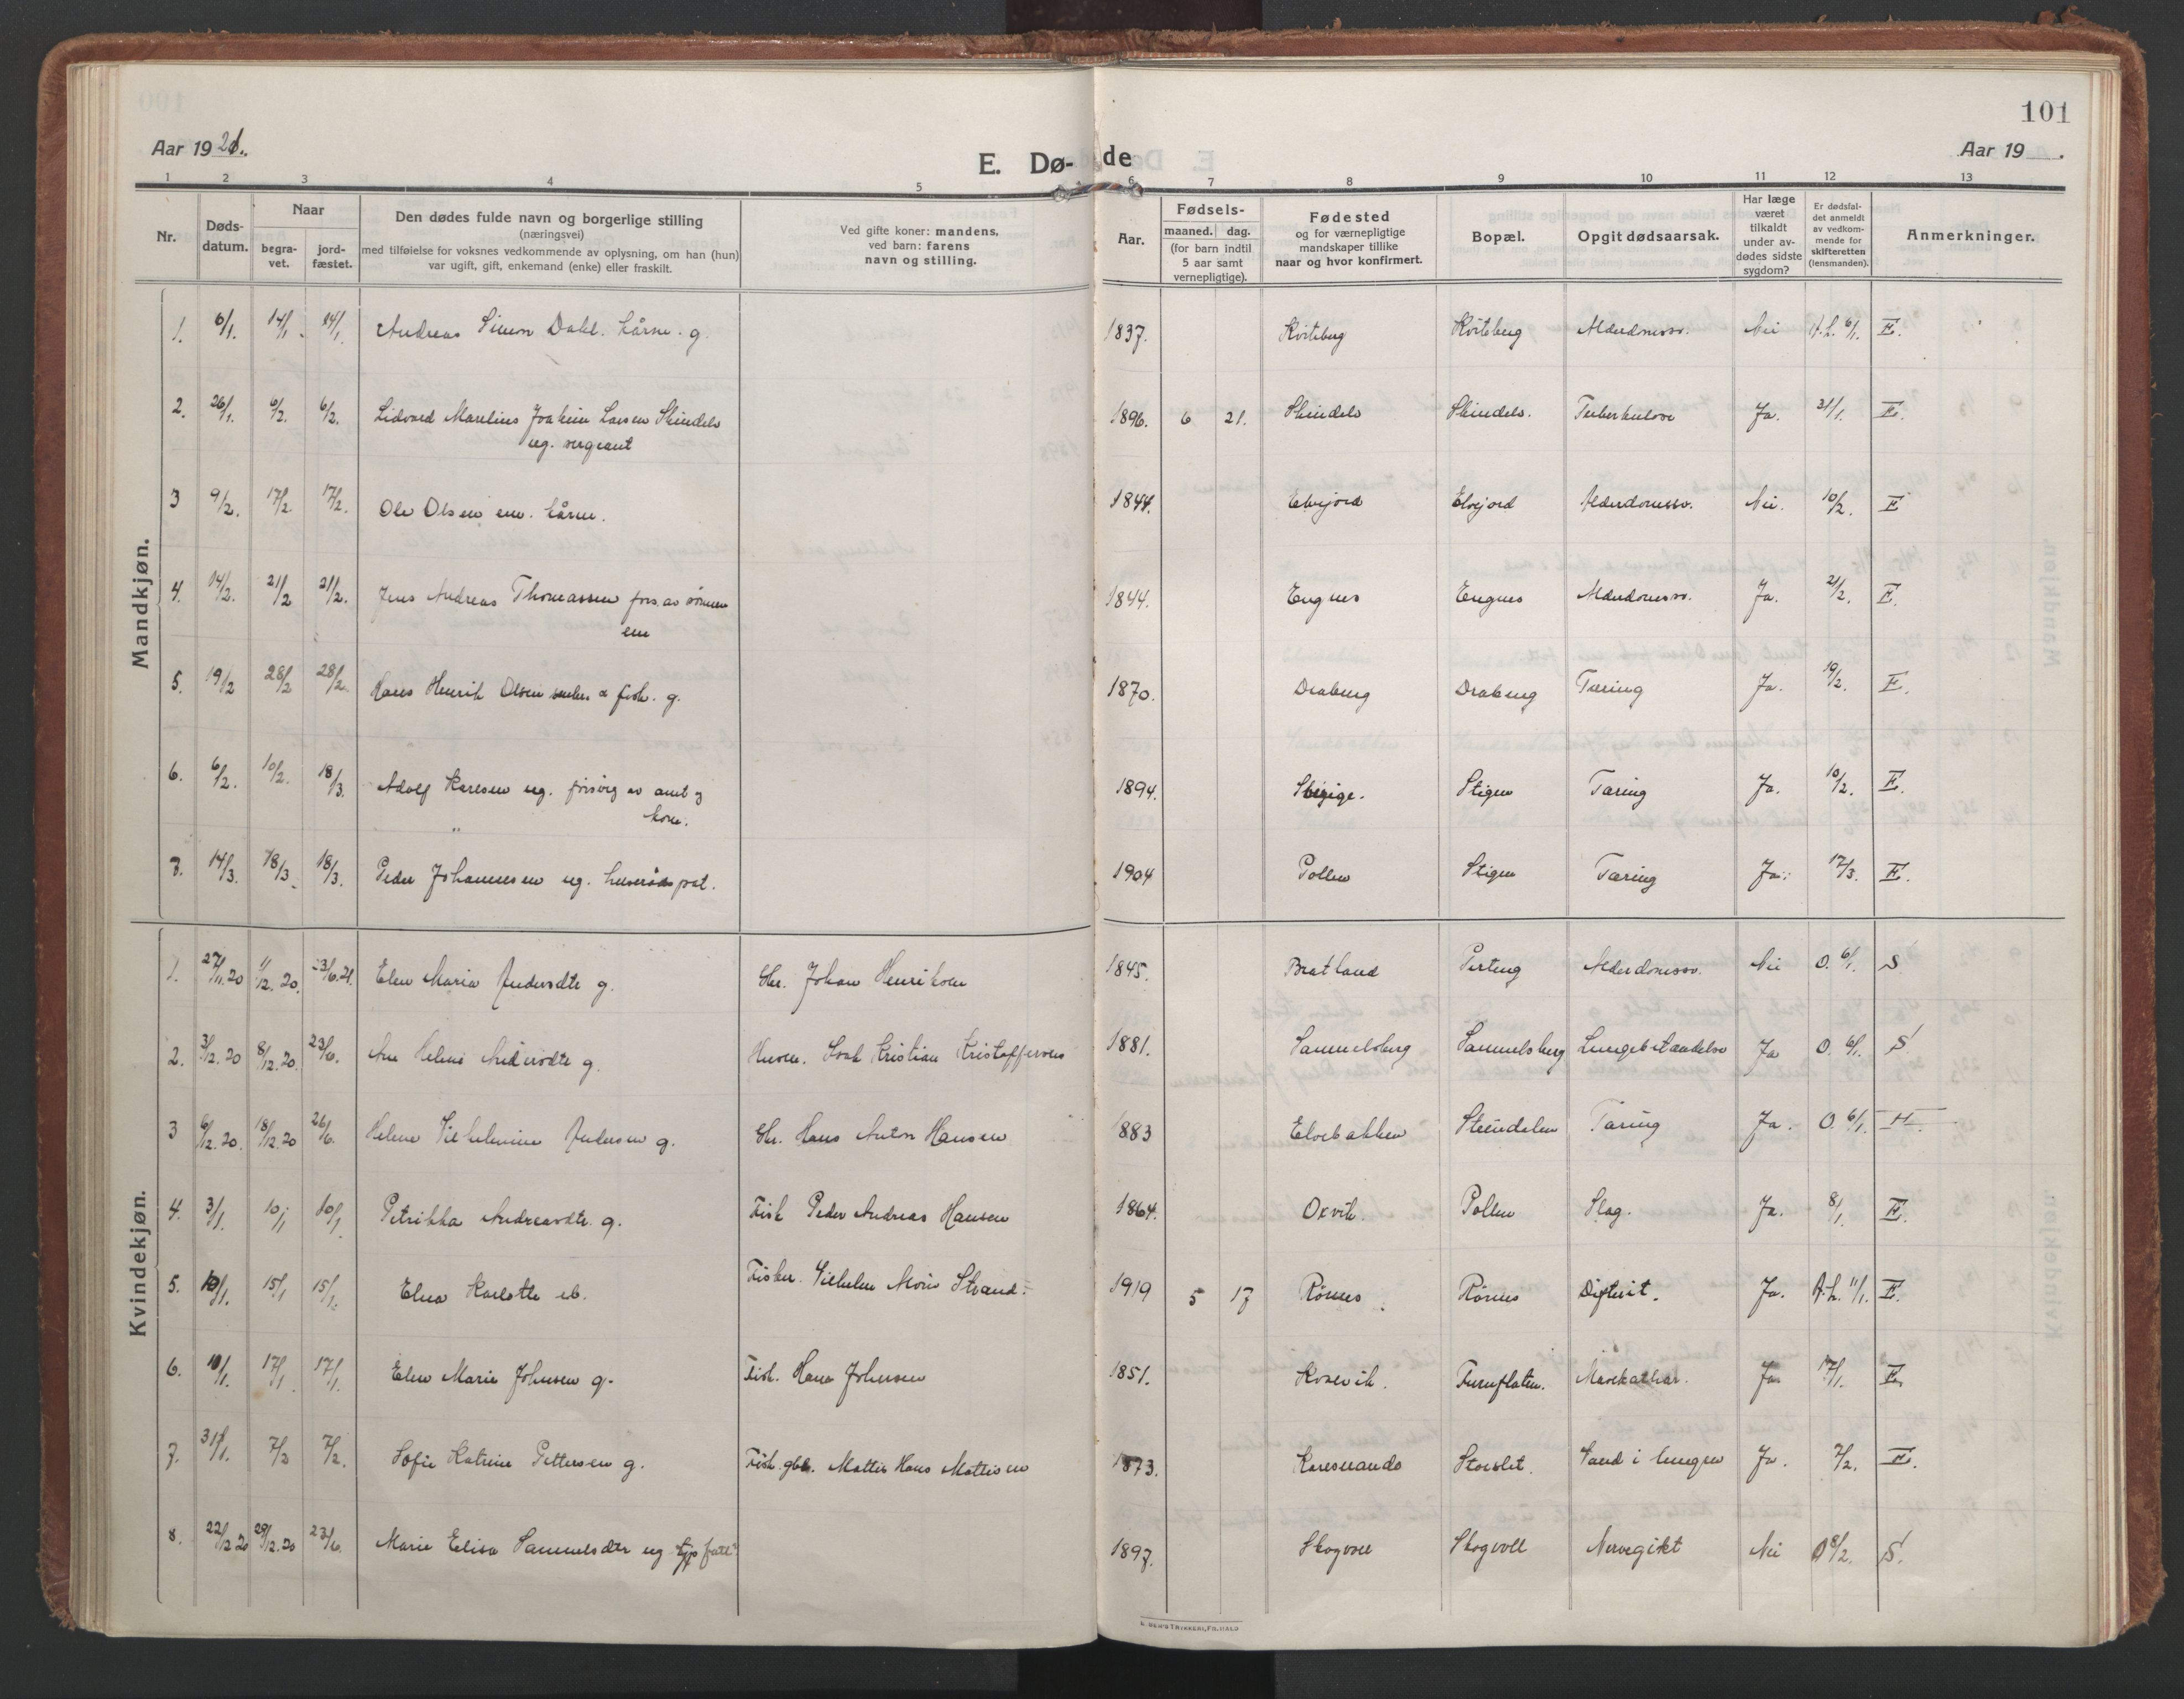 101
Aar 1921.
E. Dø- de
Aar 19
1 2 3 4 5 6 7 8 9 10 11 12 13
Nr.
Døds-
datum.
Naar
begra-
vet.
jord-
fæstet.
Den dødes fulde navn og borgerlige stilling
(næringsvei)
med tilføielse for voksnes vedkommende av oplysning, om han (hun)
var ugift, gift, enkemand (enke) eller fraskilt.
Ved gifte koner: mandens,
ved barn: farens
navn og stilling.
Aar.
Fødsels-
maaned. dag.
(for barn indtil
5 aar samt
vernepligtige).
Fødested
og for værnepligtige
mandskaper tillike
naar og hvor konfirmert.
Bopæl.
Opgit dødsaarsak.
Har læge
været
tilkaldt
under av-
dødes sidste
sygdom?
Er dødsfal-
det anmeldt
av vedkom-
mende for
skifteretten
(lensmanden).
Anmerkninger.
Mandkjøn.
1. 6/1. 14/1. 14/1. Andreas Simon Dahl. kårm. g. 1837. Kviteberg Kviteberg Alderdomssv. Nei A.L. 6/1. E.
2. 26/1. 6/2. 6/2. Lidvard Marelius Joakim Larsen Skindelv 1896. 6 21. Skindelv Skindelv. Tuberkulose Ja. 31/1. E.
ug. sergeant
3 9/2. 17/2. 17/2. Ole Olsen em. kårm. 1844. Elvejord Elvejord Alderdomssv. Nei. 10/2. E
4. 14/2. 21/2 21/2. Jens Andreas Thomassen fors. av sønnen 1844. Engnes Engnes Alderdomssv. Ja. 21/2. E.
em
5. 19/2 28/2 28/2. Hans Henrik Olsen fisk. g. 1870. Draberg Draberg Tæring Ja. 19/2. E.
6. 6/2. 10/2. 18/3. Adolf Karlsen ug. forsørg av amt og 1894. Stigen Tæring Ja. 10/2. E.
kom.
7. 14/3. 18/3. 18/3. Peder Johannesen ug. 1904 Pollen Stigen Tæring Ja. 17/3. E.
Kvindekjøn.
1. 27/11.20 11/12.20. 23/6.21. Elen Maria Andersdtr g. Gbr. Johan Henriksen 1845. Bratland Perteng Alderdomssv. Nei O. 6/1. S
2. 3/12.20 8/12.20. 23/6. Ane Helene Andersdtr g. Husm. Isak Kristian Kristoffersen 1881. Samuelsberg Samuelsberg Lungebetændelse Ja O. 6/1. S
3 6/12.20. 18/12.20 26/6. Helene Vilhelmine Andersen g. Gbr. Hans Anton Hansen 1883 Elvebakken Skindelven Tæring Ja. O. 6/1. H.
4. 3/1. 10/1 10/1. Petrikka Andreasdtr. g. Fisk Peder Andreas Hansen 1864. Oxvik. Pollen Slag. Ja. 8/1. E.
5. 10/1. 15/1 15/1. Elna Karlotte eb. Fisker. Vilhelm Moris Strand 1919 5 17 Rönnes Rönnes Difterit. Ja. A.L. 11/1. E.
6. 10/1. 17/1. 17/1. Elen Marie Johnsen g. Fisk. Hans Johnsen 1851. Kosevik. Furuflaten. Mavekatar. Ja 17/1. E.
7. 31/1. 7/2 7/2. Sofie Katrine Pettersen g. Fisk. gbr. Mattis Hans Mattisen 1873. Karesuando Storslet. Vand i lungen Ja. 7/2. E.
8. 22/12.20 29/12.20 23/6. Marie Elisa Samuelsdtr ug 1897. Skogvoll Skogvoll Nervegikt Nei O 8/2. S.